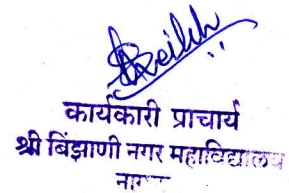 कार्यकारी प्राचार्य
श्री बिंझाणी नगर महाविद्यालय